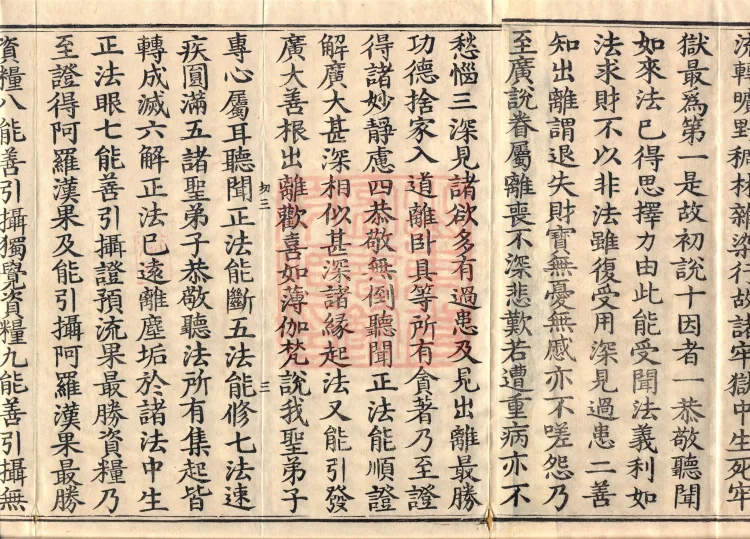 流轉曠里稠林雜染行故說牢獄中生死牢
獄最為第一是故初說十因者一恭敬聽聞
如來法已得思擇力由此能受聞法義利如
法求財不以非法雖復受用深見過患二善
知出離謂退失財寶無憂無慼亦不嗟怨乃
至廣說眷屬離喪不深悲歎若遭重病亦不
愁惱三深見諸欲多有過患及見出離最勝
功德捨家入道離臥具等所有貪著乃至證
得諸妙靜慮四恭敬無倒聽聞正法能順證
解廣大甚深相似甚深諸緣起法又能引發
廣大善根出離歡喜如薄伽梵說我聖弟子
初三 三
專心屬耳聽聞正法能斷五法能修七法速
疾圓滿五諸聖弟子恭敬聽法所有集起皆
轉成滅六解正法已遠離塵垢於諸法中生
正法眼七能善引攝證預流果最勝資糧乃
至證得阿羅漢果及能引攝阿羅漢果最勝
資糧八能善引攝獨覺資糧九能善引攝無